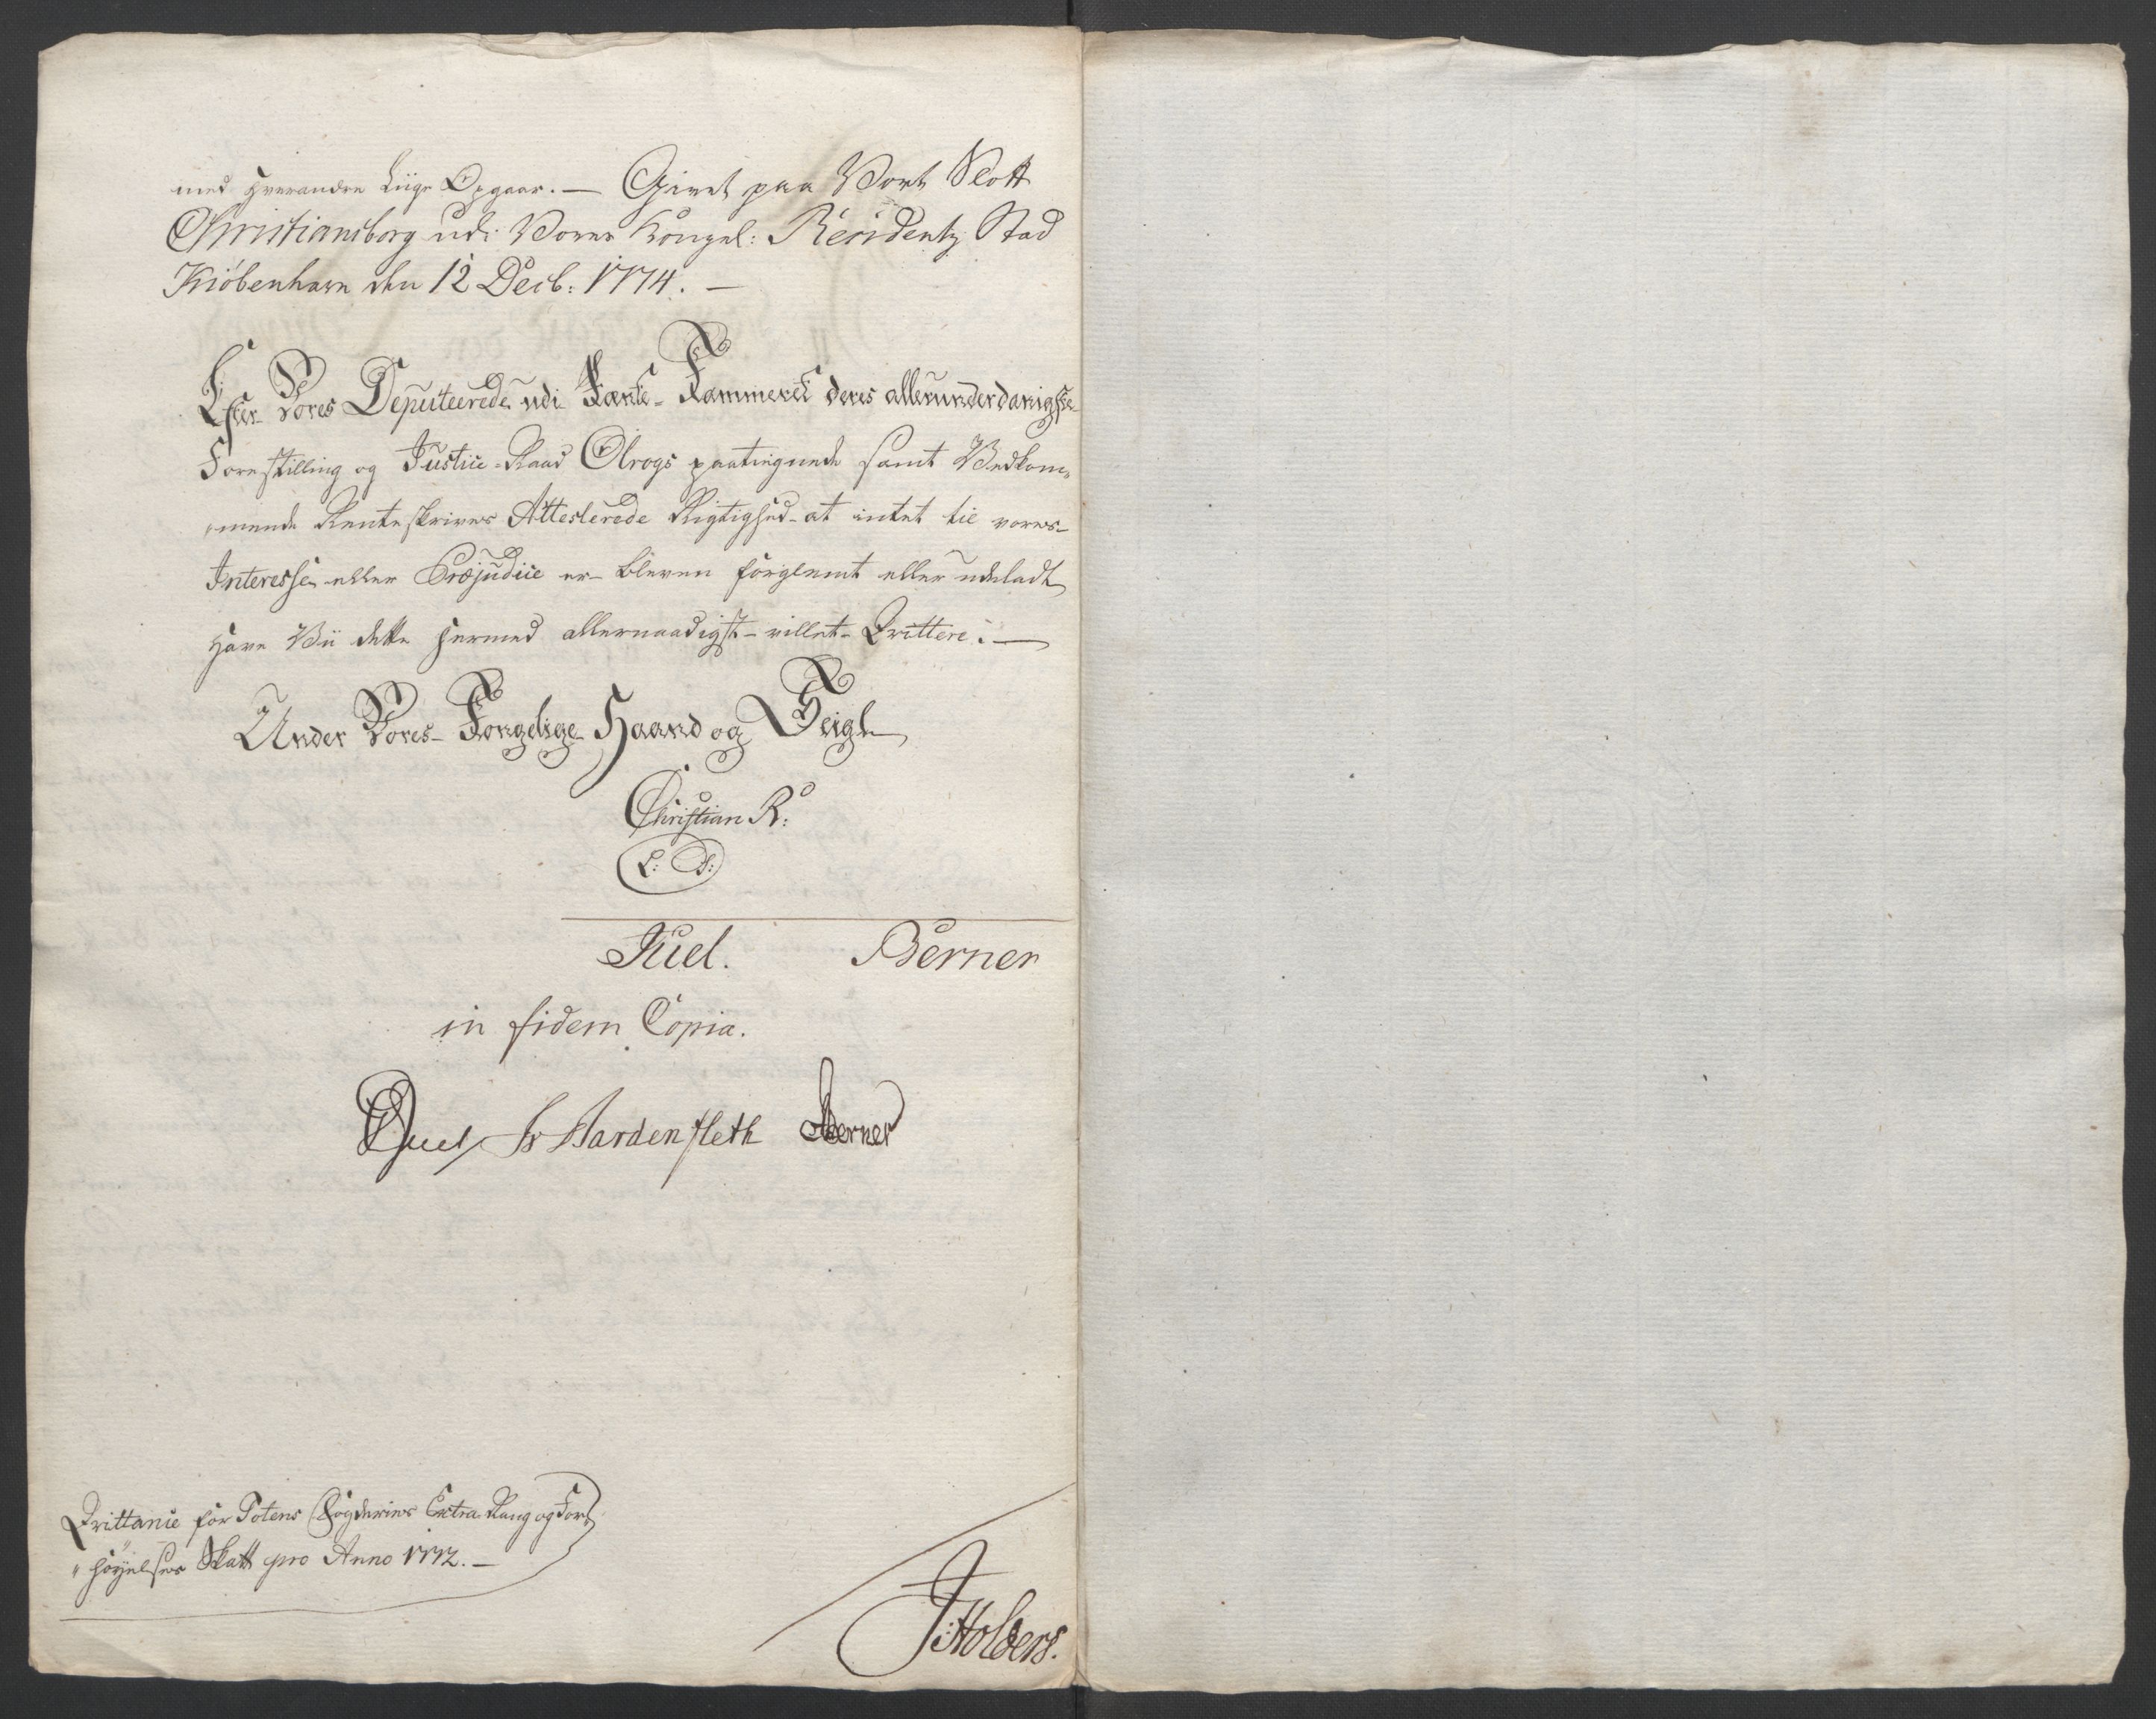 med hverandre liige Opgaar. — Givet paa Vort Slott
Christiansborg udi Vores Kongel: Residentz Stad
Kiöbenhavn den 12 Decb: 1774. —
Efter Vores Deputeerede udi Rente-Kammeret deres allerunderdanigste
Forestilling og Justice-Raad Olrogs paategnede samt Vedkom-
mende Renteskrivers Attesterede Rigtighed at intet til vores
Interesse eller Præjudice er bleven forglemt eller udeladt
have Vii dette hermed allernaadigst villet Qvittere. —
Under Vores Kongelige Haand og Seigl
Christian R:
L: S:
Juel. Berner
in fidem Copia.
Juel Hardenfleth Berner
Qvittance for Totens Fogderies Extra Rang og For-
"höyelses Skatt pro Anno 1772. —
J: Holbers.